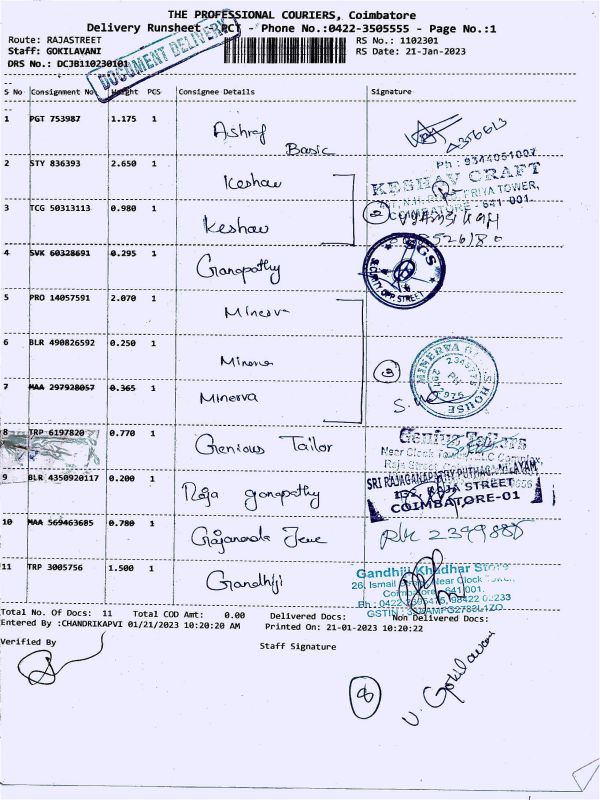 THE PROFESSIONAL COURIERS, Coimbatore
Delivery Runsheet - PCT - Phone No.:0422-3505555 - Page No.:1
Route: RAJASTREET
RS No.: 1102301
Staff: GOKILAVANI
RS Date: 21-Jan-2023
DRS No.: DCJB110230101
DOCUMENT DELIVERY
S No Consignment No Weight PCS Consignee Details Signature
1 PGT 753987 1.175 1 Ashraf Basic
2 STY 836393 2.650 1 Keshav
Ph : 9344051007
KESHAV CRAFT
3 TCG 50313113 0.980 1 Keshav
2
COIMBATORE - 641 001.
4 SVK 60328691 0.295 1 Ganapathy
SGS
SECURITY, OPP. STREET
5 PRO 14057591 2.070 1 Minerva
6 BLR 490826592 0.250 1 Minerva
3
MINERVA
HOUSE
7 MAA 297928057 0.365 1 Minerva
8 TRP 6197820 0.770 1 Genious Tailor
Genius Tailors
Near Clock Tower, Complex
9 BLR 4350920117 0.200 1 Raja ganapathy
SRI RAJAGANAPATHY PUTHAGA NILAYAM
RAJA STREET
COIMBATORE-01
10 MAA 569463685 0.780 1
11 TRP 3005756 1.500 1 Gandhiji
Gandhiji Khadhar Store
26, Ismail Near Clock Tower,
Coimbatore 641 001.
Total No. Of Docs: 11 Total COD Amt: 0.00 Delivered Docs: Non Delivered Docs:
Entered By :CHANDRIKAPVI 01/21/2023 10:20:20 AM Printed On: 21-01-2023 10:20:22
Verified By
Staff Signature
8
V. Gokilavani